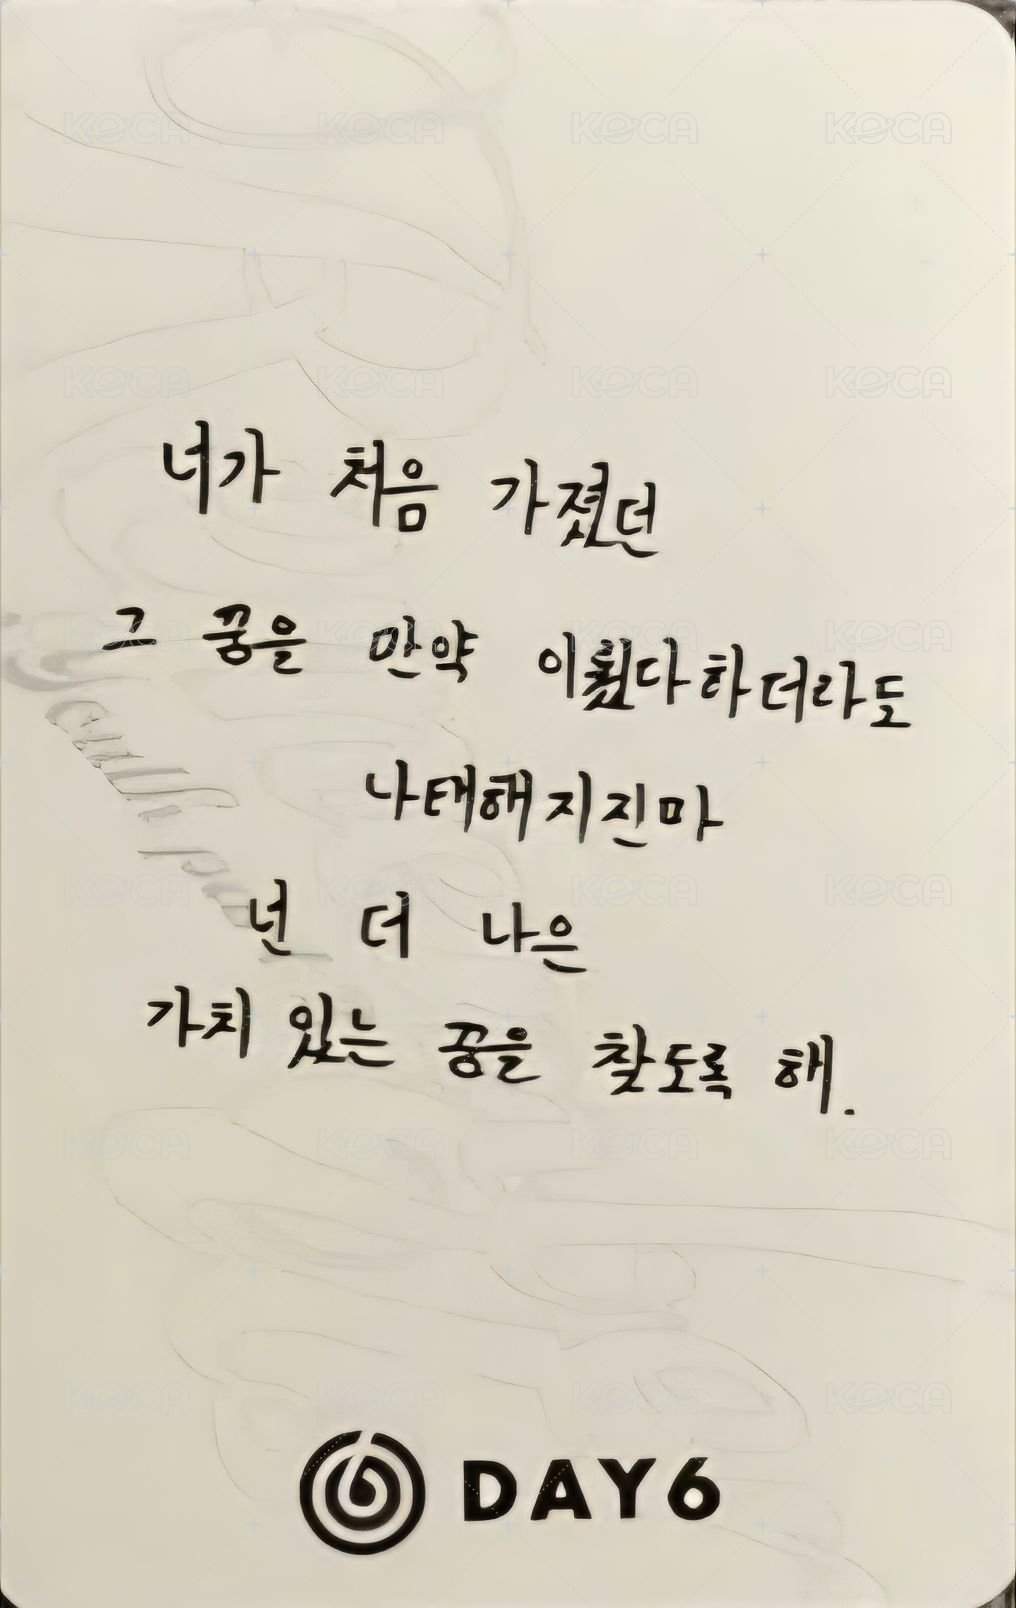 너가 처음 가졌던
그 꿈을 만약 이뤘다하더라도
나태해지진마
넌 더 나은
가치 있는 꿈을 찾도록 해.
DAY6
KOCA KOCA KOCA KOCA
KOCA KOCA KOCA KOCA
KOCA KOCA KOCA KOCA
KOCA KOCA KOCA KOCA
KOCA KOCA KOCA KOCA
KOCA KOCA KOCA KOCA